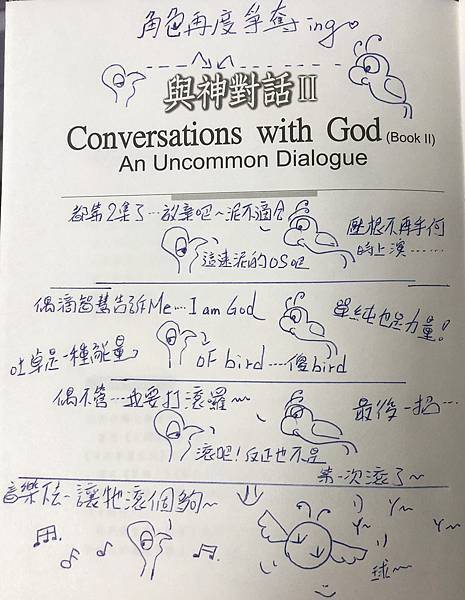 角色再度爭奪ing。
與神對話II
Conversations with God (Book II)
An Uncommon Dialogue
都第2集了…放棄吧~泥不適合
這是泥的OS吧
壓根不再乎何時上演……
偶滴智慧告訴Me…I am God
OF bird….傻bird
單純也是力量!
吐草是一種能量
偶不管…我要打滾囉~~
滾吧!反正也不是
第一次滾了~
最後一招…
音樂下~讓牠滾個夠~
Y~
Y~
Y~
球~